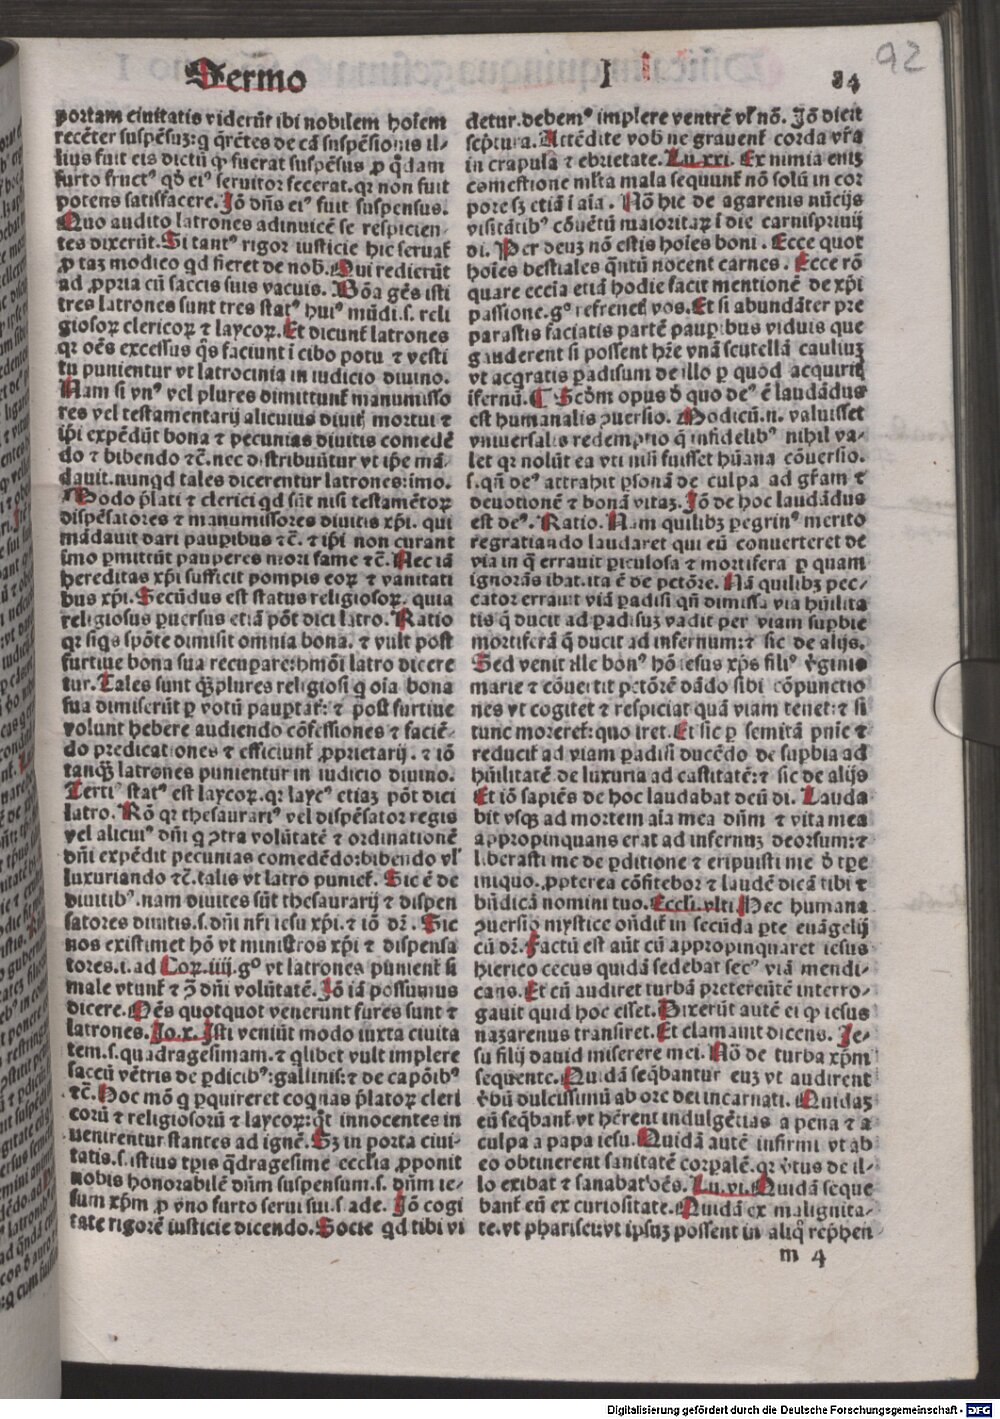 Sermo I 84
92
portam ciuitatis viderūt ibi nobilem hoīem
recēter suspēsuȝ: q̨ q̄rētes de cā suspēsionis il-
lius fuit eis dictū ꝙ fuerat suspēsus ꝓ q̄dam
furto fructꝰ qḋ eiꝰ seruitor fecerat. qꝛ non fuit
potens satisfacere. Jō dn̄s eiꝰ fuit suspensus.
Quo audito latrones adinuicē se respicien-
tes dixerūt. Si tantꝰ rigor iusticie hic seruaſ
ꝓ taȝ modico qd fieret de nob̄. Qui redierūt
ad ꝓpria cū saccis suis vacuis. Bōa gēs isti
tres latrones sunt tres statꝰ huiꝰ mūdi. s. reli
giosoꝝ clericoꝝ ⁊ laycoꝝ. Et dicunt̄ latrones
qꝛ oēs excessus q̄s faciunt ī cibo potu ⁊ vesti
tu punientur vt latrocinia in iudicio diuino.
Nam si vnꝰ vel plures dimittunt̄ manumisso
res vel testamentarij alicuius diuitis mortui ⁊
ip̄i expēdūt bona ⁊ pecunias diuitis comedē
do ⁊ bibendo ⁊c̄. nec distribuūtur vt ip̄e mā-
dauit. nunqd tales dicerentur latrones: imo.
Modo p̄lati ⁊ clerici qd sūt nisi testamētoꝝ
dispēsatores ⁊ manumissores diuitis xp̄i. qui
mādauit dari pauꝑibus ⁊c̄. ⁊ ip̄i non curant
imo ꝑmittūt pauperes mori fame ⁊c̄. Nec iā
hereditas xp̄i sufficit pompis eoꝝ ⁊ vanitati
bus xp̄i. Secūdus est status religiosoꝝ. quia
religiosus ꝑuersus etiā pōt dici latro. Ratio
qꝛ siqs spōte dimisit omnia bona. ⁊ vult post
furtiue bona sua recuꝑare: hmōi latro dicere
tur. Tales sunt q̄ȝplures religiosi q̨ oīa bona
sua dimiserūt ꝑ votū pauꝑtat̄: ⁊ post furtiue
volunt hebere audiendo cōfessiones ⁊ faciē-
do predicationes ⁊ efficiunt̄ ꝓprietarij. ⁊ iō
tanq̄ȝ latrones punientur in iudicio diuino.
Tertiꝰ statꝰ est laycoꝝ. qꝛ laycꝰ etiaȝ pōt dici
latro. Rō qꝛ thesaurariꝰ vel dispēsator regis
vel alicuiꝰ dn̄i q̨ ꝯtra volūtatē ⁊ ordinationē
dn̄i expēdit pecunias comedēdo: bibendo vl̓
luxuriando ⁊c̄. talis vt latro puniet̄. Sic ē de
diuitibꝰ. nam diuites sūt thesaurarij ⁊ dispen
satores diuitis. s. dn̄i nr̄i iesu xp̄i. ⁊ iō dr̄. Sic
nos existimet hō vt ministros xp̄i ⁊ dispensa
tores. i. ad Coꝝ. iiij. gͦ vt latrones punient̄ si
male vtunt̄ ⁊ ꝯ̄ dn̄i volūtatē. Jō iā possumus
dicere. Oēs quotquot venerunt fures sunt ⁊
latrones. Jo. x. Jsti veniūt modo iuxta ciuita
tem. s. quadragesimam. ⁊ qlibet vult implere
saccū vētris de ꝑdicibꝰ: gallinis: ⁊ de capōibꝰ
⁊c̄. Hoc mō q̨ ꝑquireret coqnas p̄latoꝝ cleri
coꝝ ⁊ religiosorū ⁊ laycoꝝ: q̄t innocentes in
uenirentur stantes ad ignē. Sȝ in porta ciui-
tatis. s. istius tꝑis q̄dragesime ecclīa ꝓponit
nobis honorabilē dn̄m suspensum. s. dn̄m ie-
sum xp̄m ꝓ vno furto serui sui. s. ade. Jō cogi
tate rigorē iusticie dicendo. Socie qd tibi vi
detur. debemꝰ implere ventrē vl̓ nō. Jō dicit
scptura. Attēdite vob̄ ne grauent̄ corda vr̄a
in crapula ⁊ ebrietate. Lu. xxi. Ex nimia eniȝ
comestione mlta mala sequunt̄ nō solū in cor
pore sȝ etiā ī aīa. Nō hic de agarenis nūcijs
visitātibꝰ cōuētū maioritaꝝ ī die carnispriuij
di. Per deuȝ nō estis hoīes boni. Ecce quot
hoīes bestiales q̄ntū nocent carnes. Ecce rō
quare ecc̄ia etiā hodie facit mentionē de xp̄i
passione. gͦ refrenet̄ vos. Et si abundāter pre
parastis faciatis partē pauꝑibus viduis que
gauderent si possent hr̄e vnā scutellā cauliuȝ
vt acqratis ꝑadisum de illo ꝑ quod acquirit̄
īfernū. Scdm opus ḋ quo deꝰ ē laudādus
est humanalis ꝯuersio. Modicū. n. valuisset
vniuersalis redemptio q̄ infidelibꝰ nihil va-
let qꝛ nolūt ea vti nisi fuisset hūana cōuersio.
s. qn̄ deꝰ attrahit ꝑsonā de culpa ad gr̄am ⁊
deuotionē ⁊ bonā vitaȝ. Jō de hoc laudādus
est deꝰ. Ratio. Nam quilibȝ ꝑegrinꝰ merito
regratiando laudaret qui eū conuerteret de
via in q̄ errauit ꝑiculosa ⁊ mortifera ꝑ quam
ignorās ibat. ita ē de pctōre. Nā quilibȝ pec-
cator errauit viā ꝑadisi qn̄ dimissa via hūilita
tis q̄ ducit ad ꝑadisuȝ vadit per viam suꝑbie
mortiferā q̄ ducit ad infernum: ⁊ sic de alijs.
Sed venit ille bonꝰ hō iesus xp̄s filiꝰ v̓ginis
marie ⁊ cōuertit pctōrē dādo sibi cōpunctio
nes vt cogitet ⁊ respiciat quā viam tenet: ⁊ si
tunc moreret̄: quo iret. Et sic ꝑ semitā pnīe ⁊
reducit ad viam ꝑadisi ducēdo de suꝑbia ad
hūilitatē de luxuria ad castitatē: ⁊ sic de alijs
Et iō sapiēs de hoc laudabat deū di. Lauda
bit vsqȝ ad mortem aīa mea dn̄m ⁊ vita mea
appropinquans erat ad infernuȝ deorsum: ⁊
liberasti me de ꝑditione ⁊ eripuisti me ḋ tꝑe
iniquo. ꝓpterea cōfitebor ⁊ laudē dicā tibi ⁊
bn̄dicā nomini tuo. Eccli. vlti. Hec humana
ꝯuersio mystice ondit̄ in secūda pte euāgelij
cū dr̄. Factū est aūt cū appropinquaret iesus
hierico cecus quidā sedebat secꝰ viā mendi-
cans. Et cū audiret turbā pretereūtē interro-
gauit quid hoc esset. Dixerūt autē ei ꝙ iesus
nazarenus transiret. Et clamauit dicens. Je-
su fili dauid miserere mei. Nō de turba xp̄m
sequente. Quidā seqbantur euȝ vt audirent
v̓bū dulcissimū ab ore dei incarnati. Quidaȝ
eū seqbant̄ vt hērent indulgētias a pena ⁊ a
culpa a papa iesu. Quidā autē infirmi vt ab
eo obtinerent sanitatē corꝑalē. qꝛ v̓tus de il-
lo exibat ⁊ sanabat oēs. Lu. vi. Quidā seque
bant̄ eū ex curiositate. Quidā ex malignita-
te. vt pharisei: vt ipsuȝ possent in aliq̄ reprehen
m 4
Digitalisierung gefördert durch die Deutsche Forschungsgemeinschaft - DFG